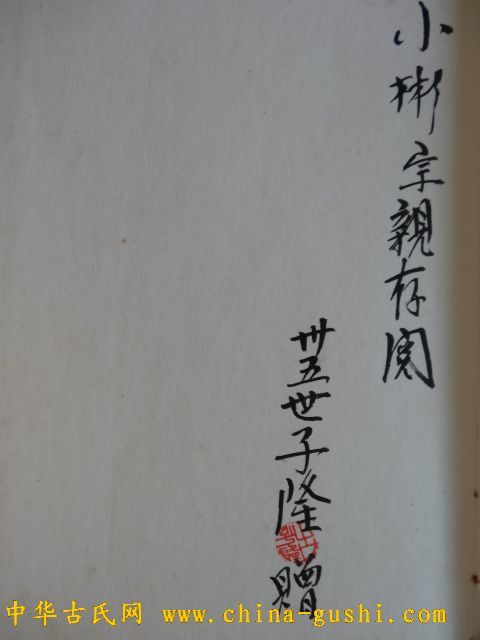 小彬宗親存閱
卅五世子隆贈
中华古氏网 www.china-gushi.com